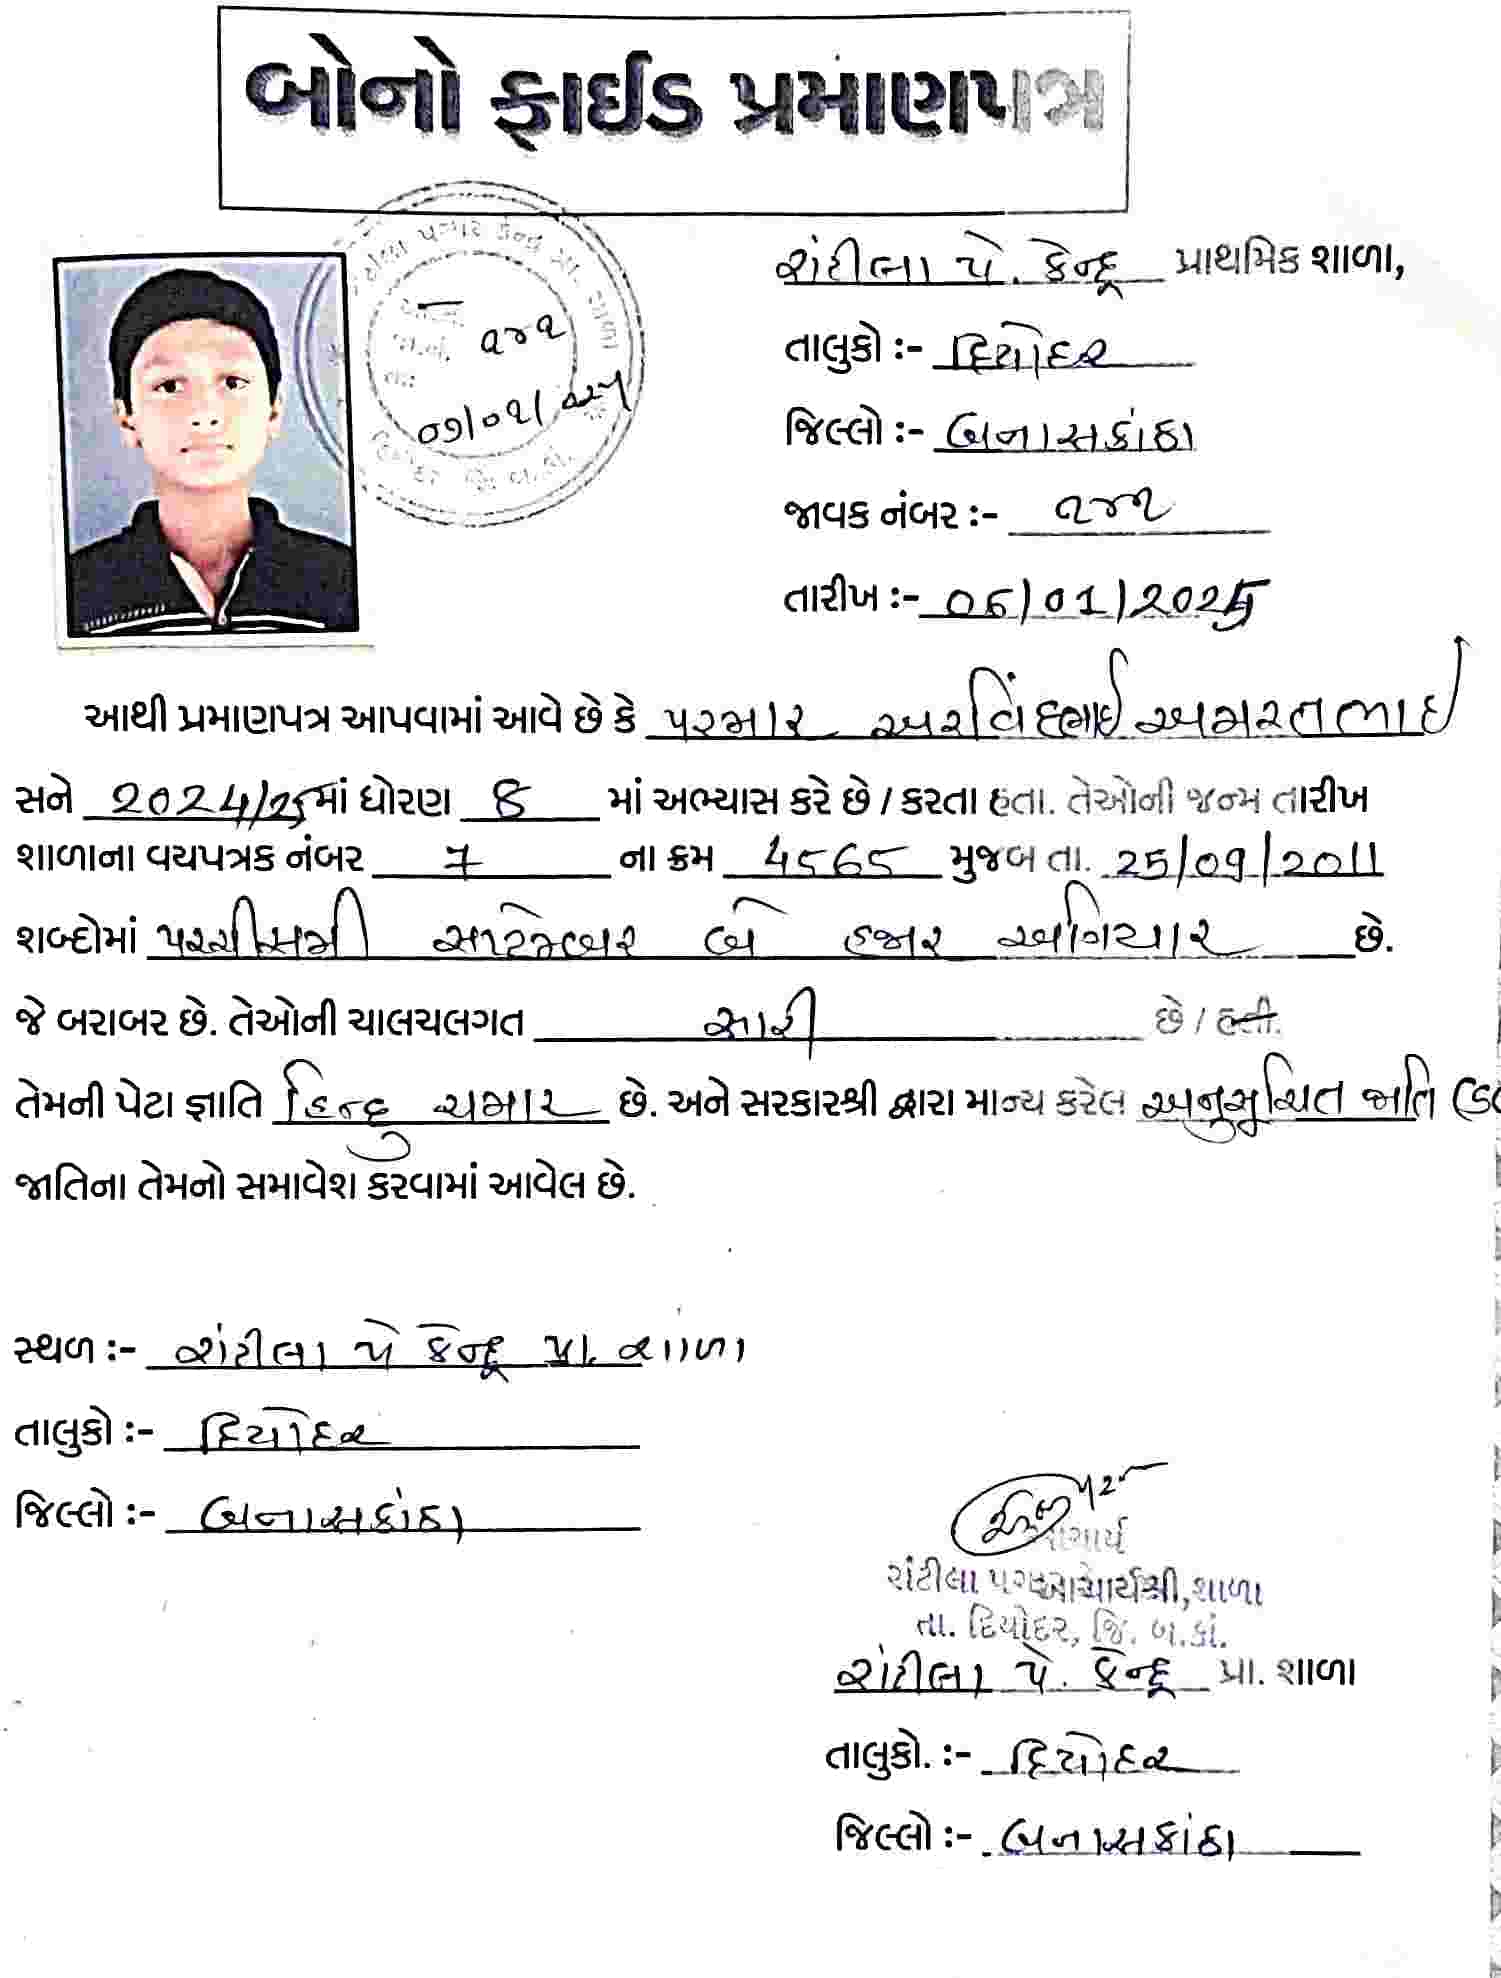 બોનો ફાઈડ પ્રમાણપત્ર
રાંટીલા પે. કેન્દ્ર પ્રાથમિક શાળા,
તાલુકો :- દિયોદર
જિલ્લો :- બનાસકાંઠા
જાવક નંબર :- ૧૪૧
તારીખ :- 06/01/2025
૧૪૧
આથી પ્રમાણપત્ર આપવામાં આવે છે કે પરમાર અરવિંદભાઈ અમરતભાઈ
સને 2024/25માં ધોરણ 8 માં અભ્યાસ કરે છે / કરતા હતા. તેઓની જન્મ તારીખ
શાળાના વયપત્રક નંબર 7 ના ક્રમ 4565 મુજબ તા. 25/09/2011
શબ્દોમાં પચ્ચીસમી સપ્ટેમ્બર બે હજાર અગિયાર છે.
જે બરાબર છે. તેઓની ચાલચલગત સારી છે / હતી.
તેમની પેટા જ્ઞાતિ હિન્દુ ચમાર છે. અને સરકારશ્રી દ્વારા માન્ય કરેલ અનુસૂચિત જાતિ (SC
જાતિના તેમનો સમાવેશ કરવામાં આવેલ છે.
સ્થળ :- રાંટીલા પે કેન્દ્ર પ્રા. શાળા
તાલુકો :- દિયોદર
જિલ્લો :- બનાસકાંઠા
આચાર્ય
રાંટીલા આચાર્યશ્રી, શાળા
તા. દિયોદર, જિ. બ.કાં.
રાંટીલા પે. કેન્દ્ર પ્રા. શાળા
તાલુકો. :- દિયોદર
જિલ્લો :- બનાસકાંઠા